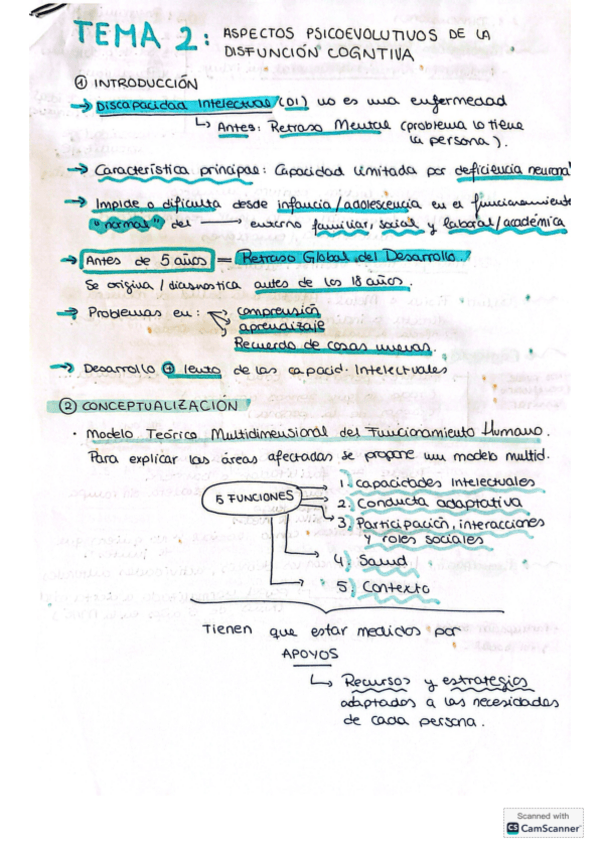 TEMA 2: ASPECTOS PSICOEVOLUTIVOS DE LA
DISFUNCIÓN COGNTIVA
① INTRODUCCIÓN
→ Discapacidad Intelectual (DI) no es una enfermedad
↳ Antes: Retraso Mental (problema lo tiene
la persona).
→ Característica principal: Capacidad limitada por deficiencia neuronal
→ Impide o dificulta desde infancia/adolescencia en el funcionamiento
"normal" del → entorno familiar, social y laboral/académica
→ Antes de 5 años = Retraso Global del Desarrollo.
Se origina/diagnostica antes de los 18 años.
→ Problemas en: → comprensión
aprendizaje
Recuerdo de cosas nuevas.
→ Desarrollo ⊕ lento de las capacid. Intelectuales
② CONCEPTUALIZACIÓN
· Modelo Teórico Multidimensional del Funcionamiento Humano.
Para explicar las áreas afectadas se propone un modelo multid.
5 FUNCIONES
1. capacidades Intelectuales
2. Conducta adaptativa
3. Participación, interacciones
y roles sociales
4. Salud
5. Contexto
Tienen que estar medidos por
APOYOS
↳ Recursos y estrategias
adaptados a las necesidades
de cada persona.
Scanned with
CS CamScanner